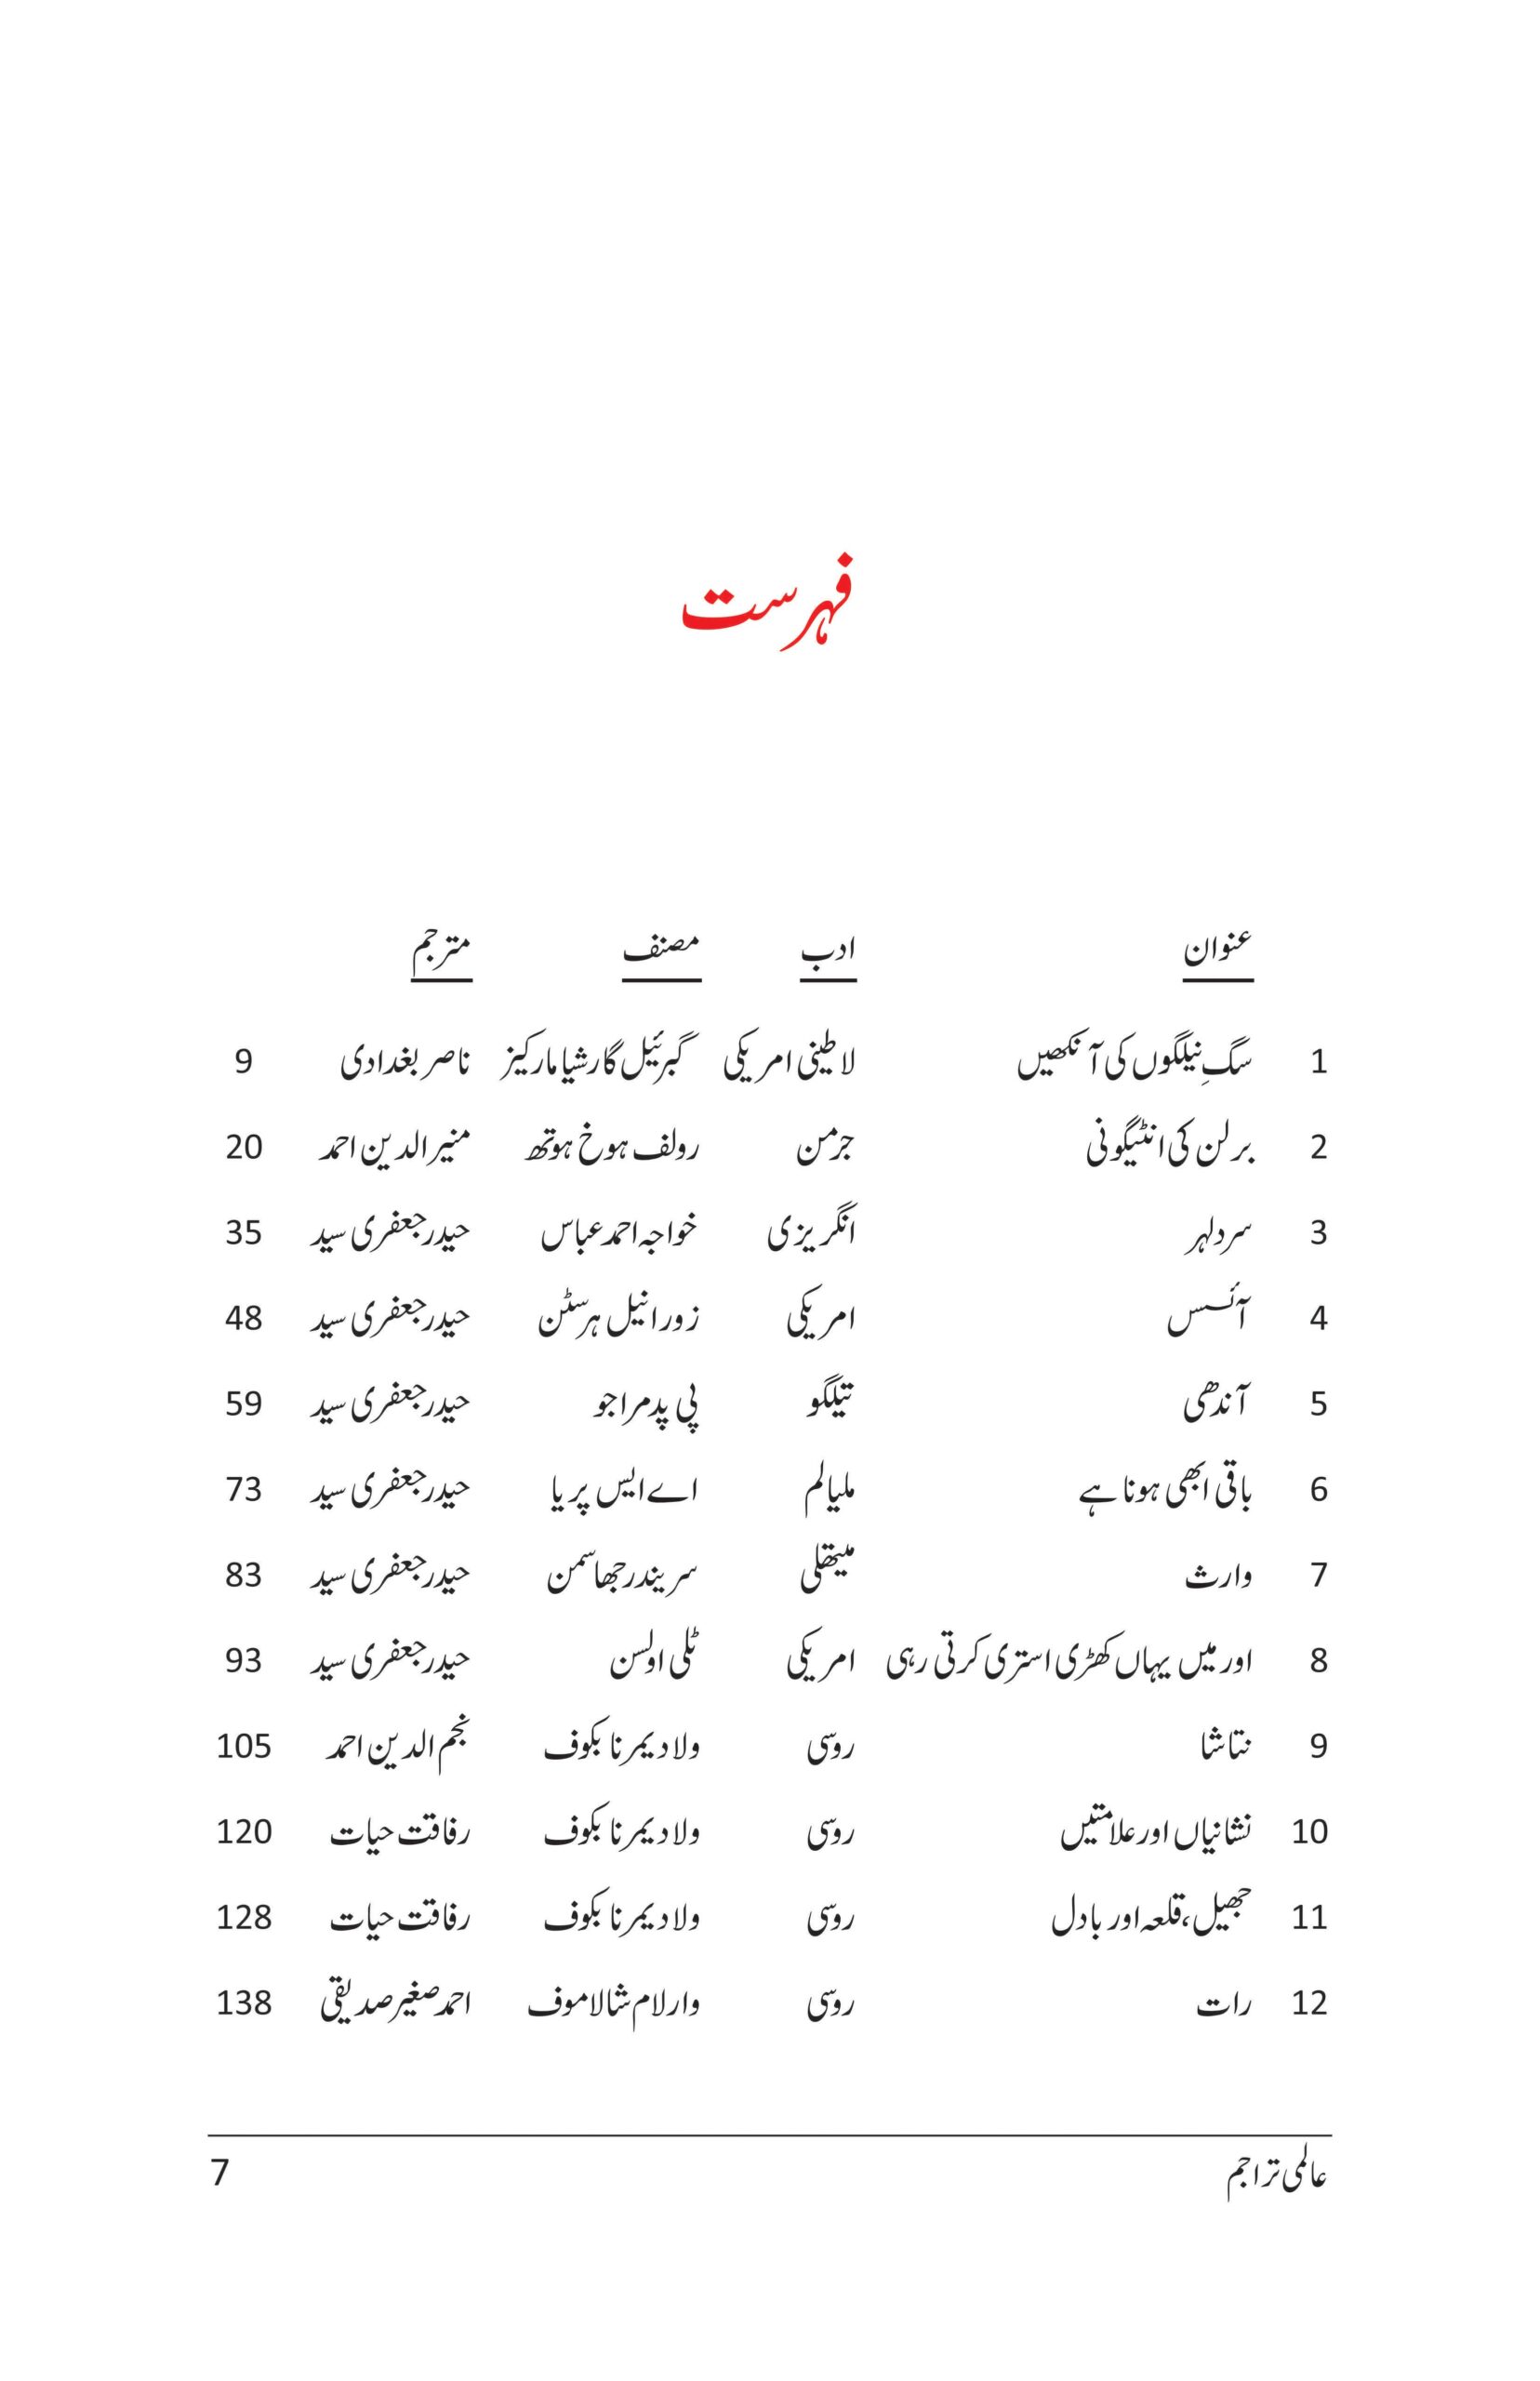 فہرست
عنوان ادب مصنف مترجم
1 سگِ نیلگوں کی آنکھیں لاطینی امریکی گبرئیل گارشیا مارکیز ناصر بغدادی 9
2 برلن کی انٹیگونی جرمن رولف ہوخ ہوتھ منیر الدین احمد 20
3 سرد لہر انگریزی خواجہ احمد عباس حیدر جعفری سید 35
4 آئسس امریکی زورا نیل ہرسٹن حیدر جعفری سید 48
5 آندھی تیلگو پی پدمراجو حیدر جعفری سید 59
6 باقی ابھی ہونا ہے ملیالم اے ایس پریا حیدر جعفری سید 73
7 وارث میتھلی سریندر جھا سمن حیدر جعفری سید 83
8 اور میں یہاں کھڑی استری کرتی رہی امریکی ٹلی اولسن حیدر جعفری سید 93
9 نتاشا روسی ولادیمر نابکوف نجم الدین احمد 105
10 نشانیاں اور علامتیں روسی ولادیمر نابکوف رفاقت حیات 120
11 جھیل، قلعہ اور بادل روسی ولادیمر نابکوف رفاقت حیات 128
12 رات روسی وارلام شالاموف احمد صغیر صدیقی 138
عالمی تراجم 7